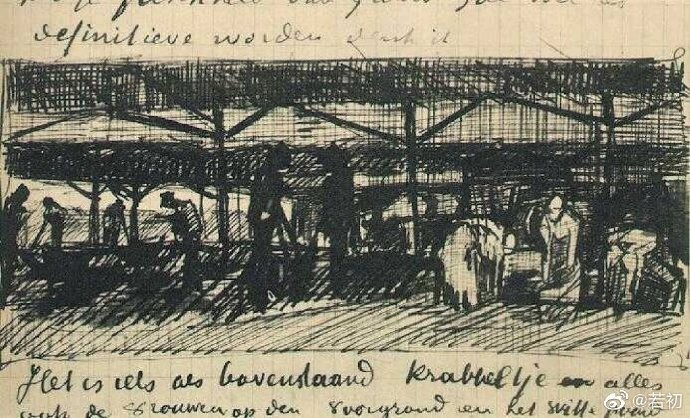 definitieve worden denk ik
Het is iets als bovenstaand krabbeltje en alles
ook de vrouwen op den voorgrond en het witte
@若初